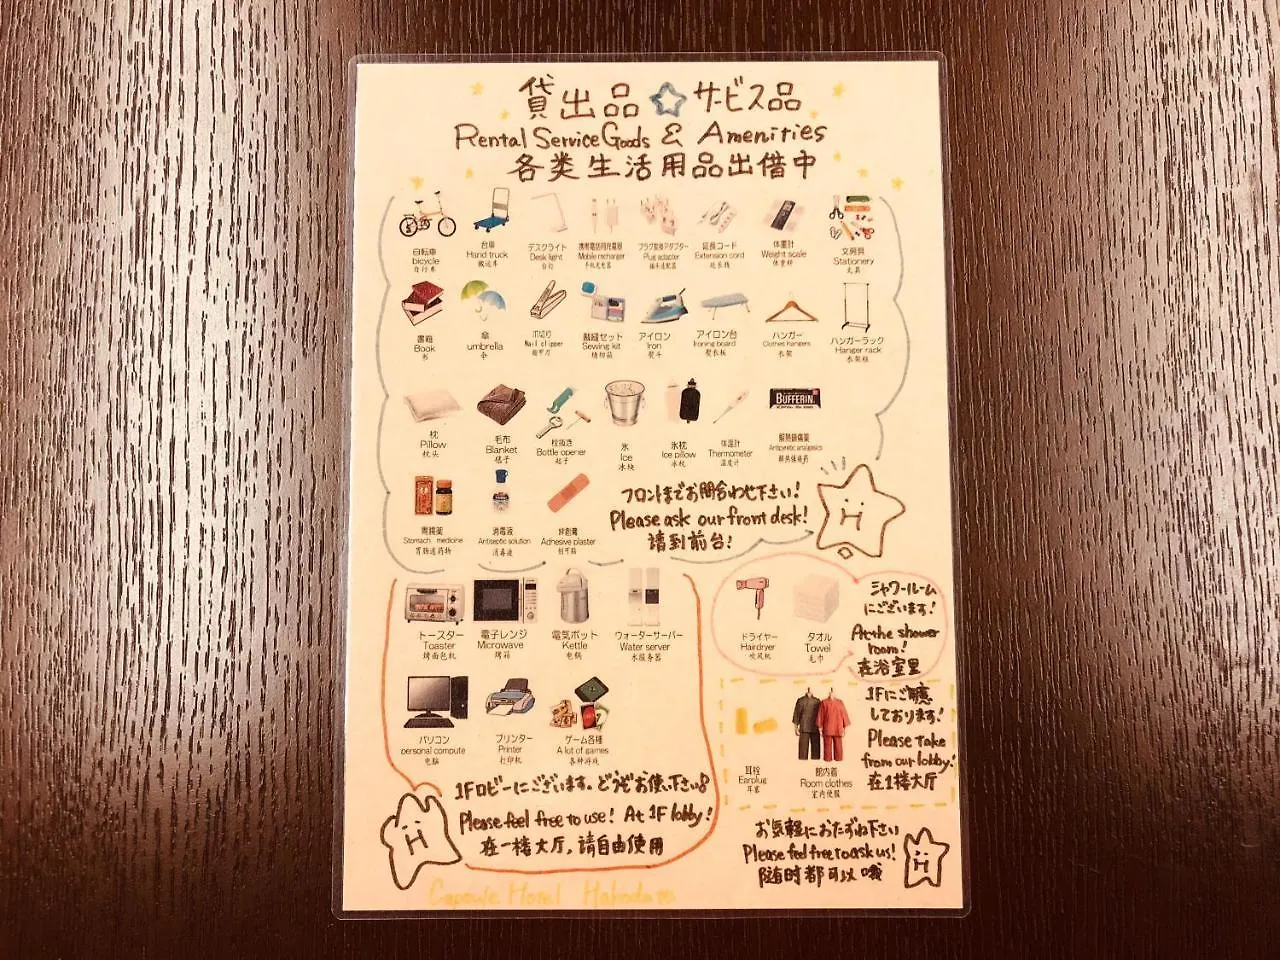 貸出品☆サービス品
Rental Service Goods & Amenities
各类生活用品出借中
自転車
bicycle
自行车
台車
Hand truck
搬运车
デスクライト
Desk light
台灯
携帯電話用充電器
Mobile recharger
手机充电器
プラグ変換アダプター
Plug adapter
插头适配器
延長コード
Extension cord
延长线
体重計
Weight scale
体重秤
文房具
Stationery
文具
書籍
Book
书
傘
umbrella
伞
爪切り
Nail clipper
指甲刀
裁縫セット
Sewing kit
アイロン
Iron
熨斗
アイロン台
Ironing board
熨衣板
ハンガー
Clothes hangers
衣架
ハンガーラック
Hanger rack
BUFFERIN
枕
Pillow
枕头
毛布
Blanket
毯子
栓抜き
Bottle opener
起子
氷
Ice
冰块
氷枕
Ice pillow
冰枕
体温計
Thermometer
温度计
解熱鎮痛薬
Antipyretic analgesics
胃腸薬
Stomach medicine
胃肠道药物
消毒液
Antiseptic solution
消毒液
絆創膏
Adhesive plaster
创可贴
フロントまでお問合わせ下さい!
Please ask our front desk!
请到前台!
H
トースター
Toaster
烤面包机
電子レンジ
Microwave
烤箱
電気ポット
Kettle
电锅
ウォーターサーバー
Water server
水服务器
パソコン
personal compute
电脑
プリンター
Printer
打印机
ゲーム各種
A lot of games
各种游戏
1Fロビーにございます。どうぞお使い下さい♪
Please feel free to use! At 1F lobby!
在一楼大厅,请自由使用
H
ドライヤー
Hairdryer
吹风机
タオル
Towel
毛巾
シャワールーム
にございます!
At the shower
room!
在浴室里
耳栓
Earplug
耳塞
館内着
Room clothes
室内便服
1Fにご用意
しております!
Please take
from our lobby!
在1楼大厅
お気軽におたずね下さい
Please feel free to ask us!
随时都可以哦
H
Capsule Hotel